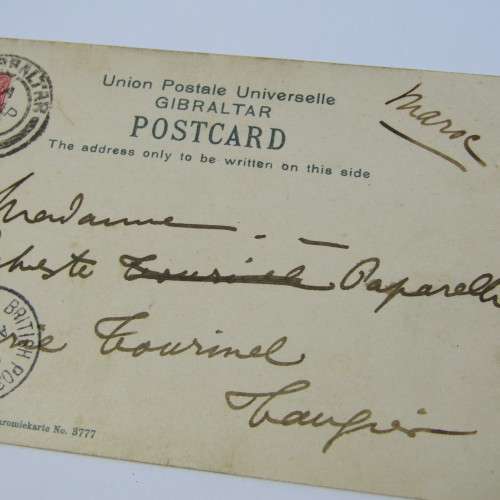 GIBRALTAR
Union Postale Universelle
GIBRALTAR
POSTCARD
The address only to be written on this side
Maroc
Madame
Paparelli
Tourinel
Tangier
BRITISH POS
romiekarte No. 3777